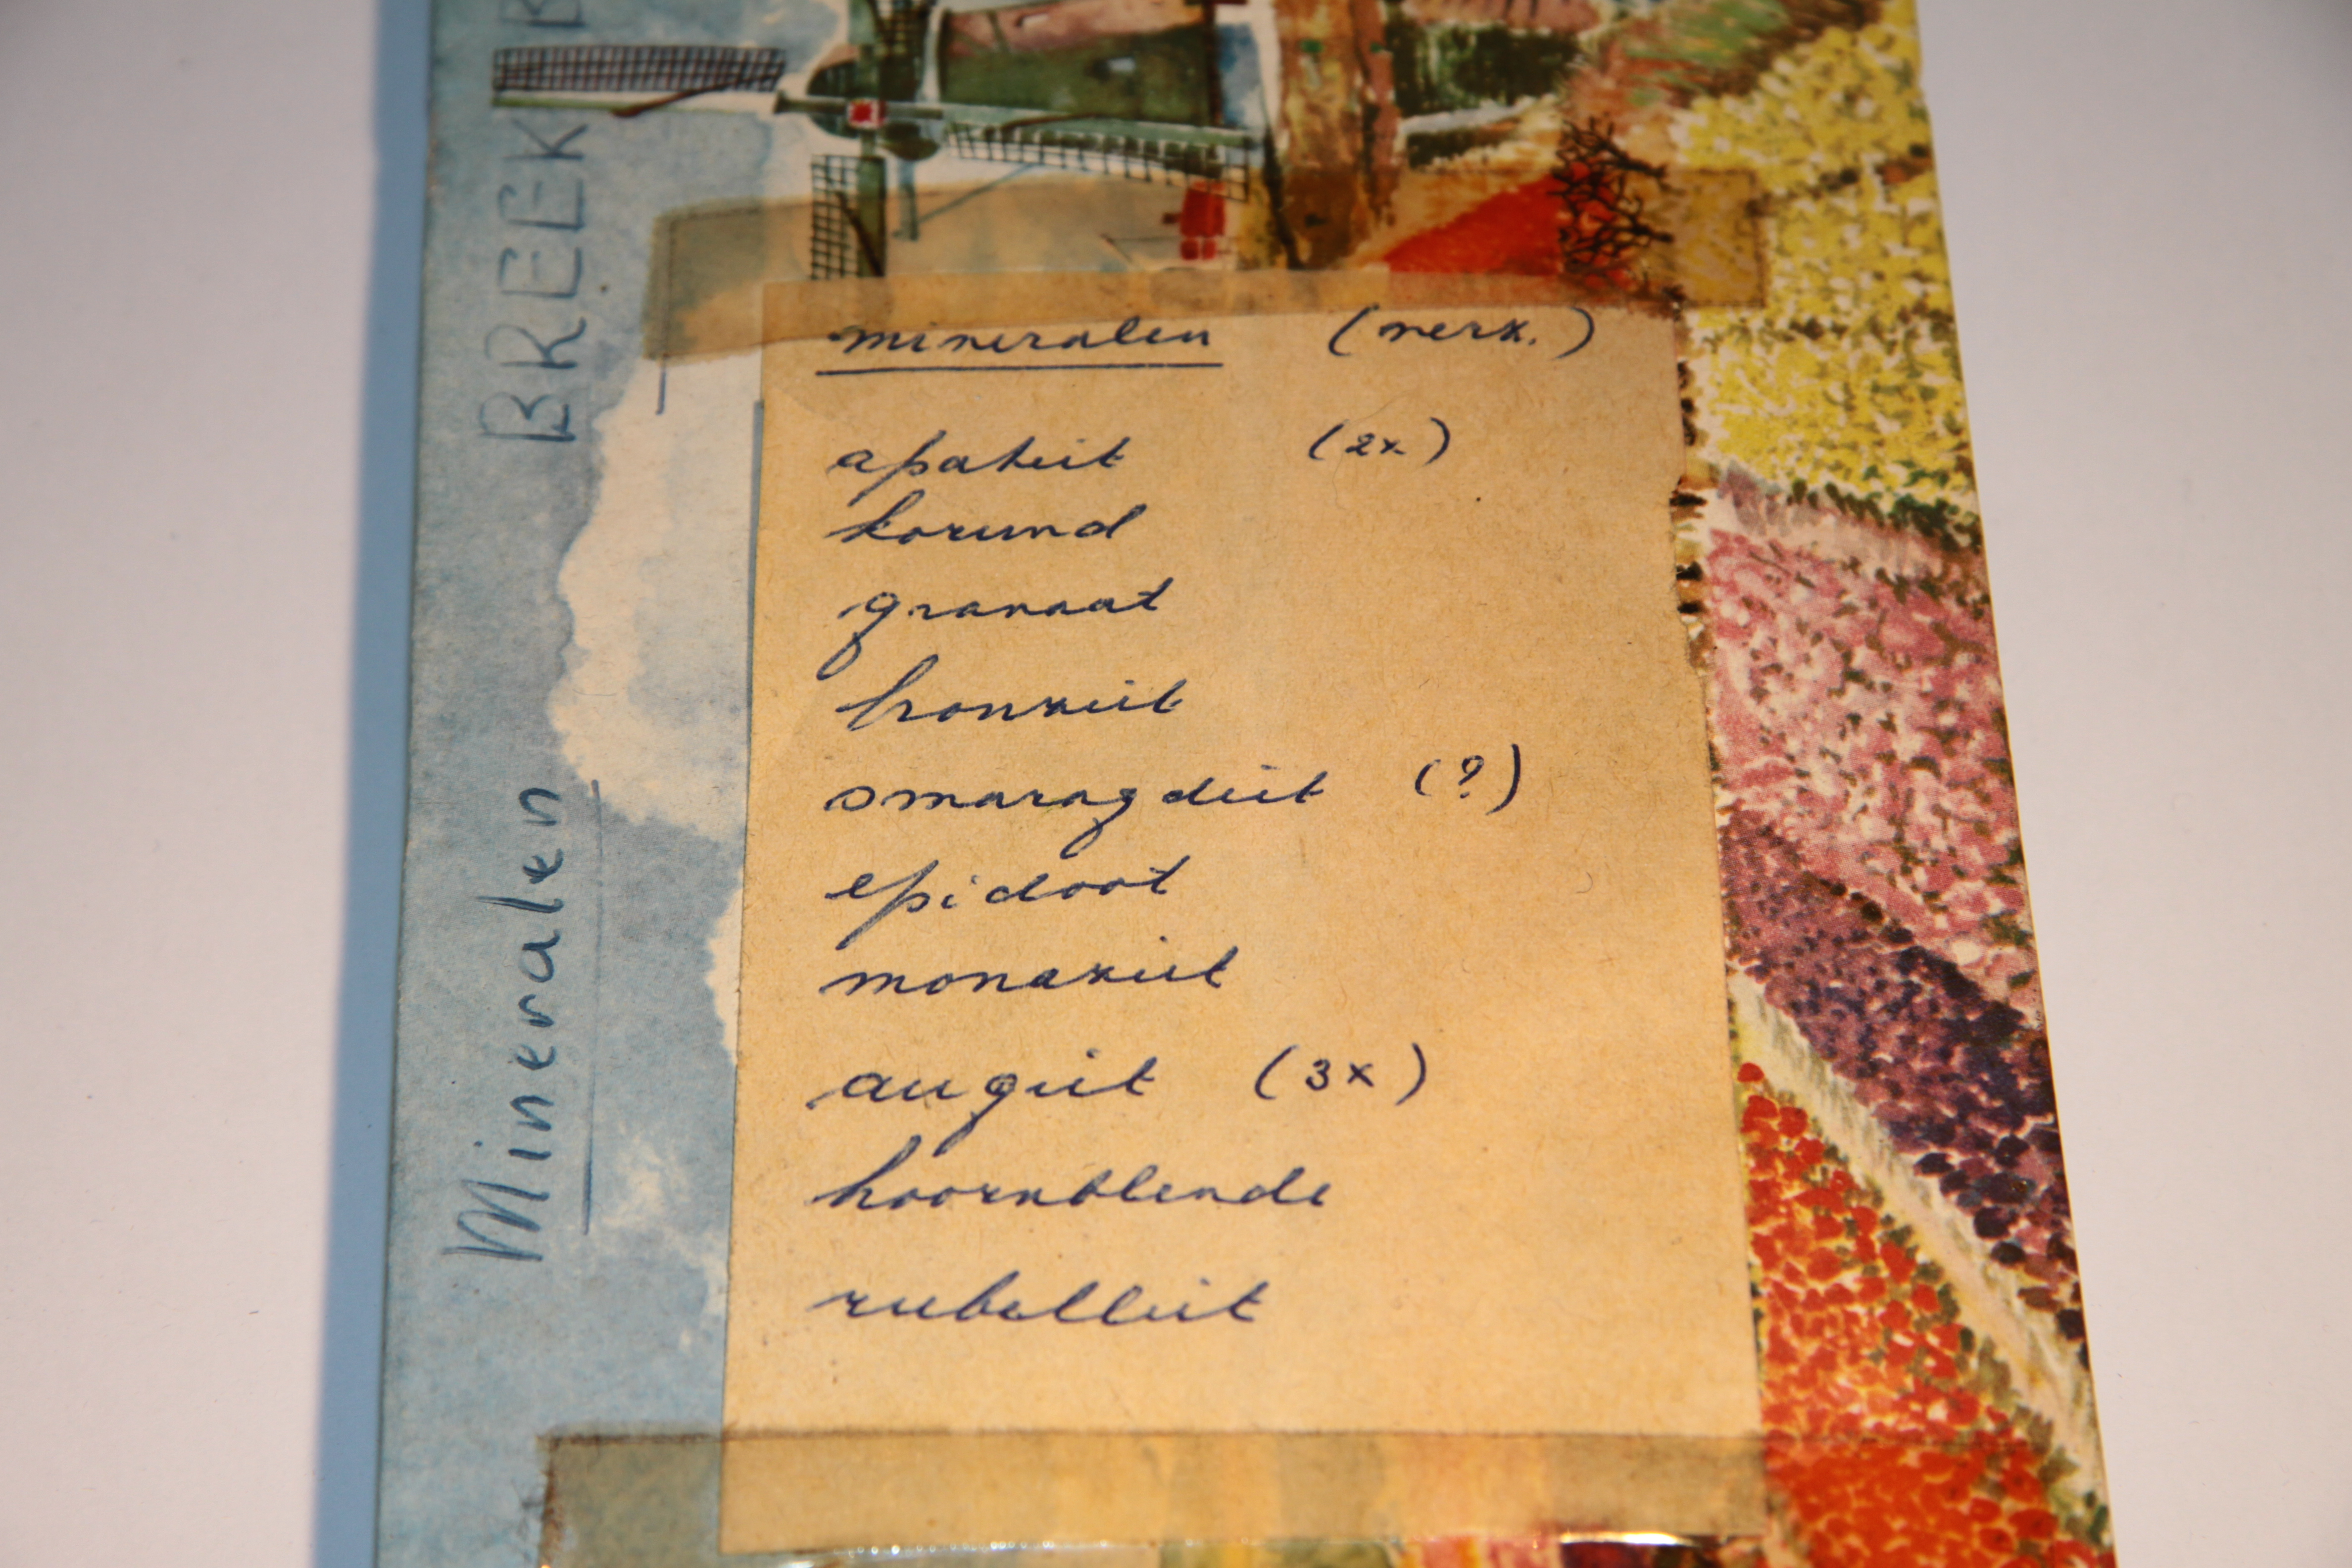 mineralen (verk.)
apatiet (2x)
korund
granaat
bronziet
smaragdiet (?)
epidoot
monaziet
augiet (3x)
hoornblende
rubelliet
Mineralen
BREEK